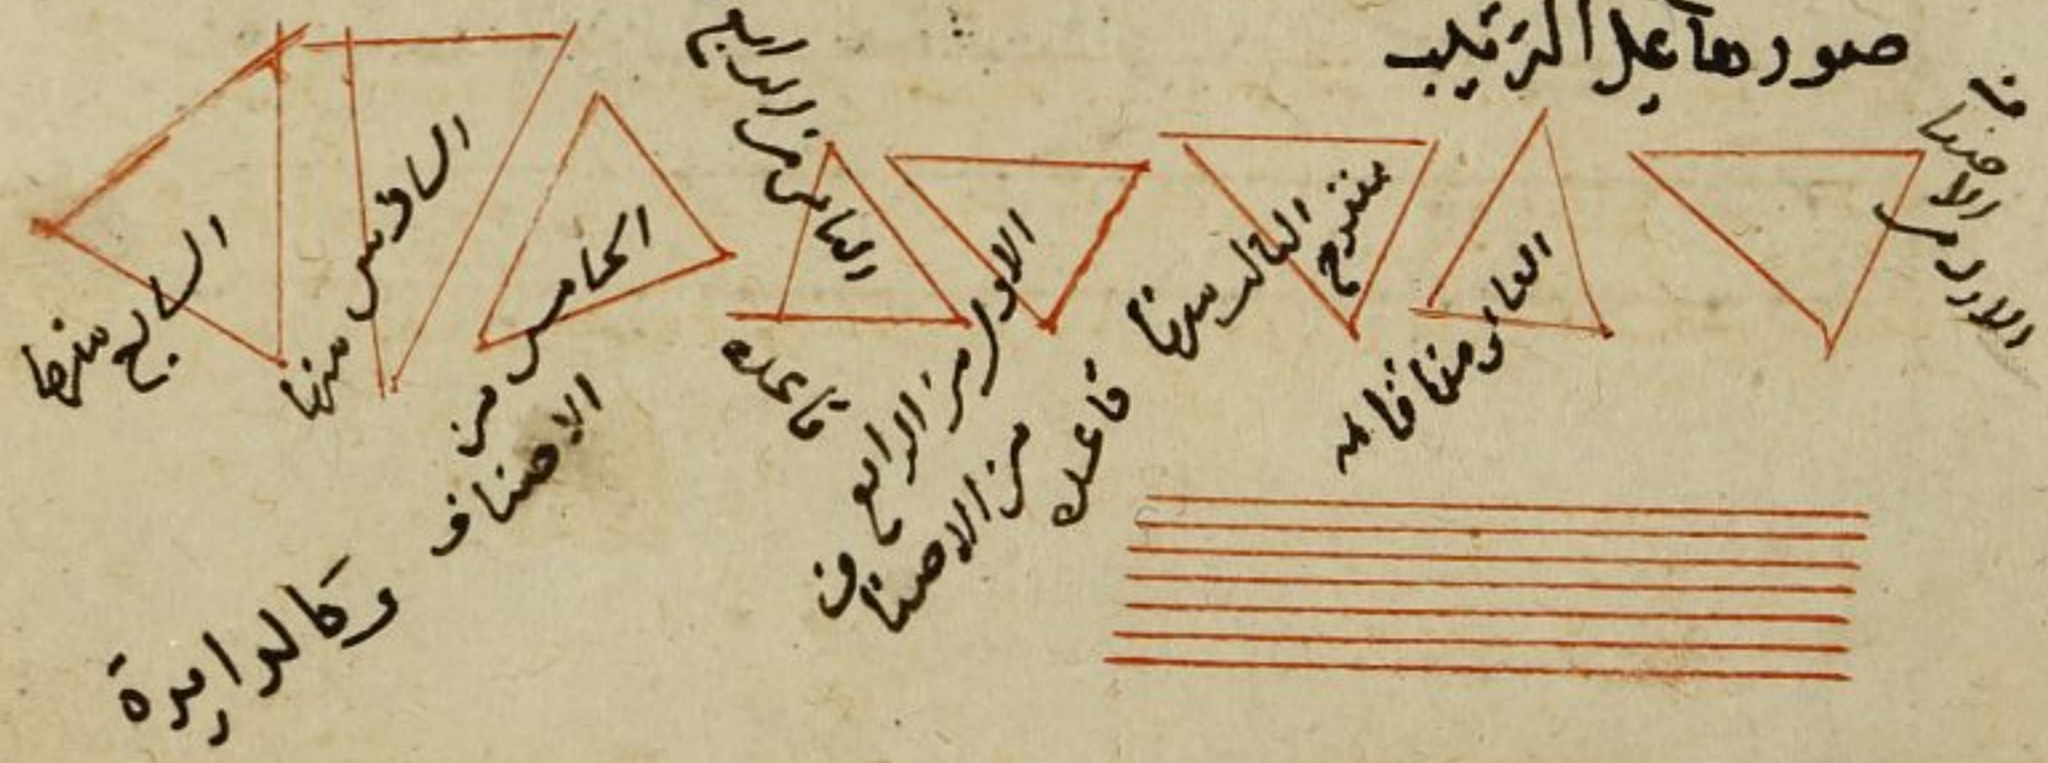 صورها على الترتيب
الاول من الاصنا
ف
الثاني منها قايم
منفرج
الثالث منها
قاعده
الاول من الرابع
من الاصناف
الثانى من الرابع
قاعده
الخامس من
الاصناف
السادس منها
السابع منها
وكالدايرة